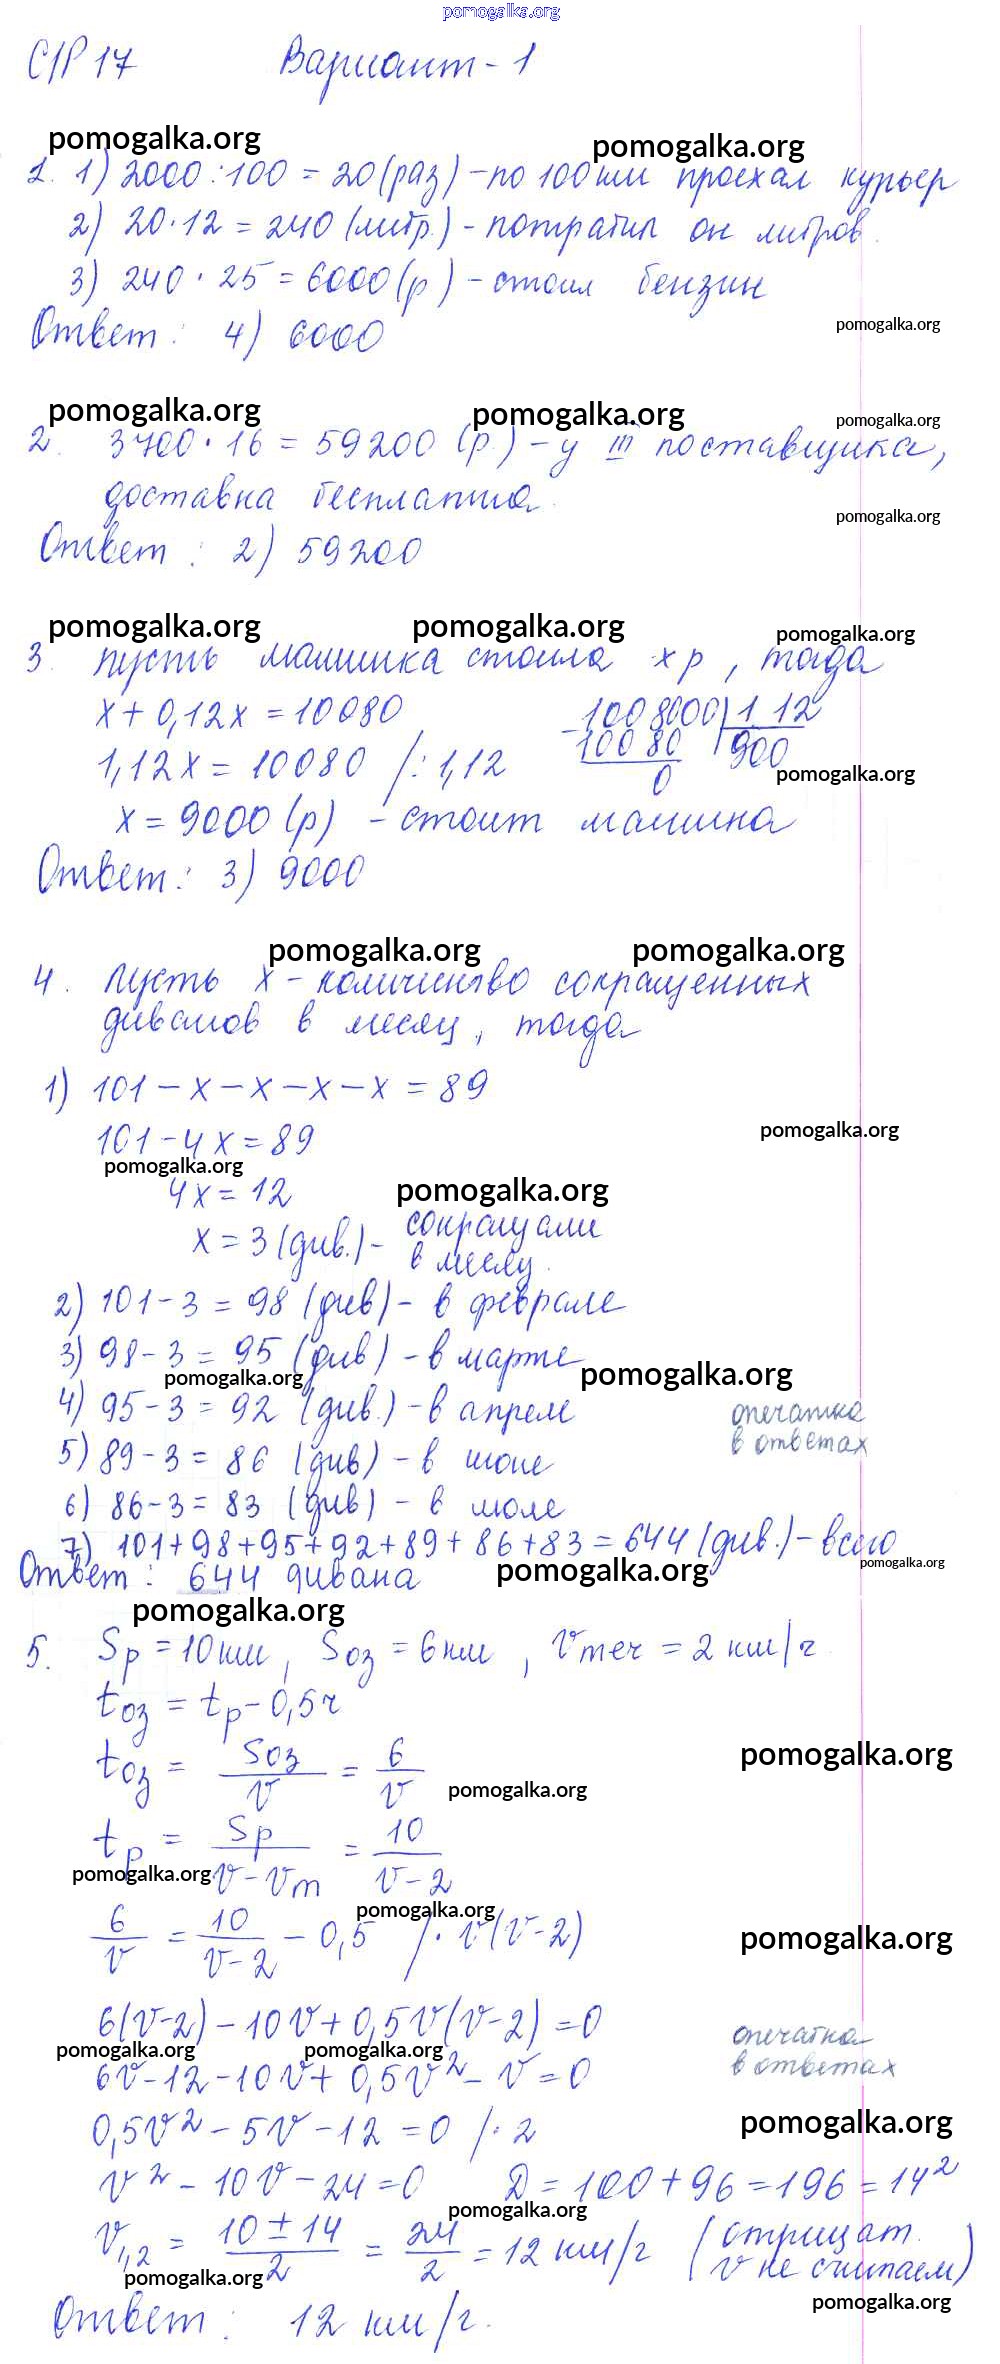 pomogalka.org
С/Р 17 Вариант - 1
pomogalka.org pomogalka.org
1. 1) 2000 : 100 = 20 (раз) - по 100 км проехал курьер
2) 20 · 12 = 240 (литр.) - потратил он литров.
3) 240 · 25 = 6000 (р) - стоил бензин
Ответ: 4) 6000
pomogalka.org
pomogalka.org pomogalka.org pomogalka.org
2. 3700 · 16 = 59200 (р.) - у III поставщика,
доставка бесплатна.
pomogalka.org
Ответ: 2) 59200
pomogalka.org pomogalka.org pomogalka.org
3. Пусть машинка стоила x р, тогда
x + 0,12x = 10080 1008000 | 1 12
1,12x = 10080 /: 1,12 10080 900
0 pomogalka.org
x = 9000 (р) - стоит машина
Ответ: 3) 9000
pomogalka.org pomogalka.org
4. Пусть x - количинство сокращенных
диванов в месяц, тогда
1) 101 - x - x - x - x = 89
101 - 4x = 89 pomogalka.org
pomogalka.org
4x = 12 pomogalka.org
x = 3 (див.) - сокращали
в месяц.
2) 101 - 3 = 98 (див) - в феврале
3) 98 - 3 = 95 (див) - в марте
pomogalka.org pomogalka.org
4) 95 - 3 = 92 (див.) - в апреле опечатка
5) 89 - 3 = 86 (див) - в июне в ответах
6) 86 - 3 = 83 (див) - в июле
7) 101 + 98 + 95 + 92 + 89 + 86 + 83 = 644 (див.) - всего
Ответ: 644 дивана pomogalka.org pomogalka.org
pomogalka.org
5. Sр = 10 км, Sоз = 6 км, vтеч = 2 км/ч.
tоз = tр - 0,5 ч
tоз = Sоз/v = 6/v pomogalka.org
pomogalka.org
tр = Sр/(v - vт) = 10/(v - 2)
pomogalka.org
pomogalka.org
6/v = 10/(v - 2) - 0,5 /· v(v - 2) pomogalka.org
6(v - 2) - 10v + 0,5v(v - 2) = 0 опечатка
pomogalka.org pomogalka.org в ответах
6v - 12 - 10v + 0,5v² - v = 0
0,5v² - 5v - 12 = 0 /· 2 pomogalka.org
v² - 10v - 24 = 0 D = 100 + 96 = 196 = 14²
pomogalka.org
v1,2 = (10 ± 14)/2 = 24/2 = 12 км/ч (отрицат.
v не считаем)
pomogalka.org
pomogalka.org
Ответ: 12 км/ч.